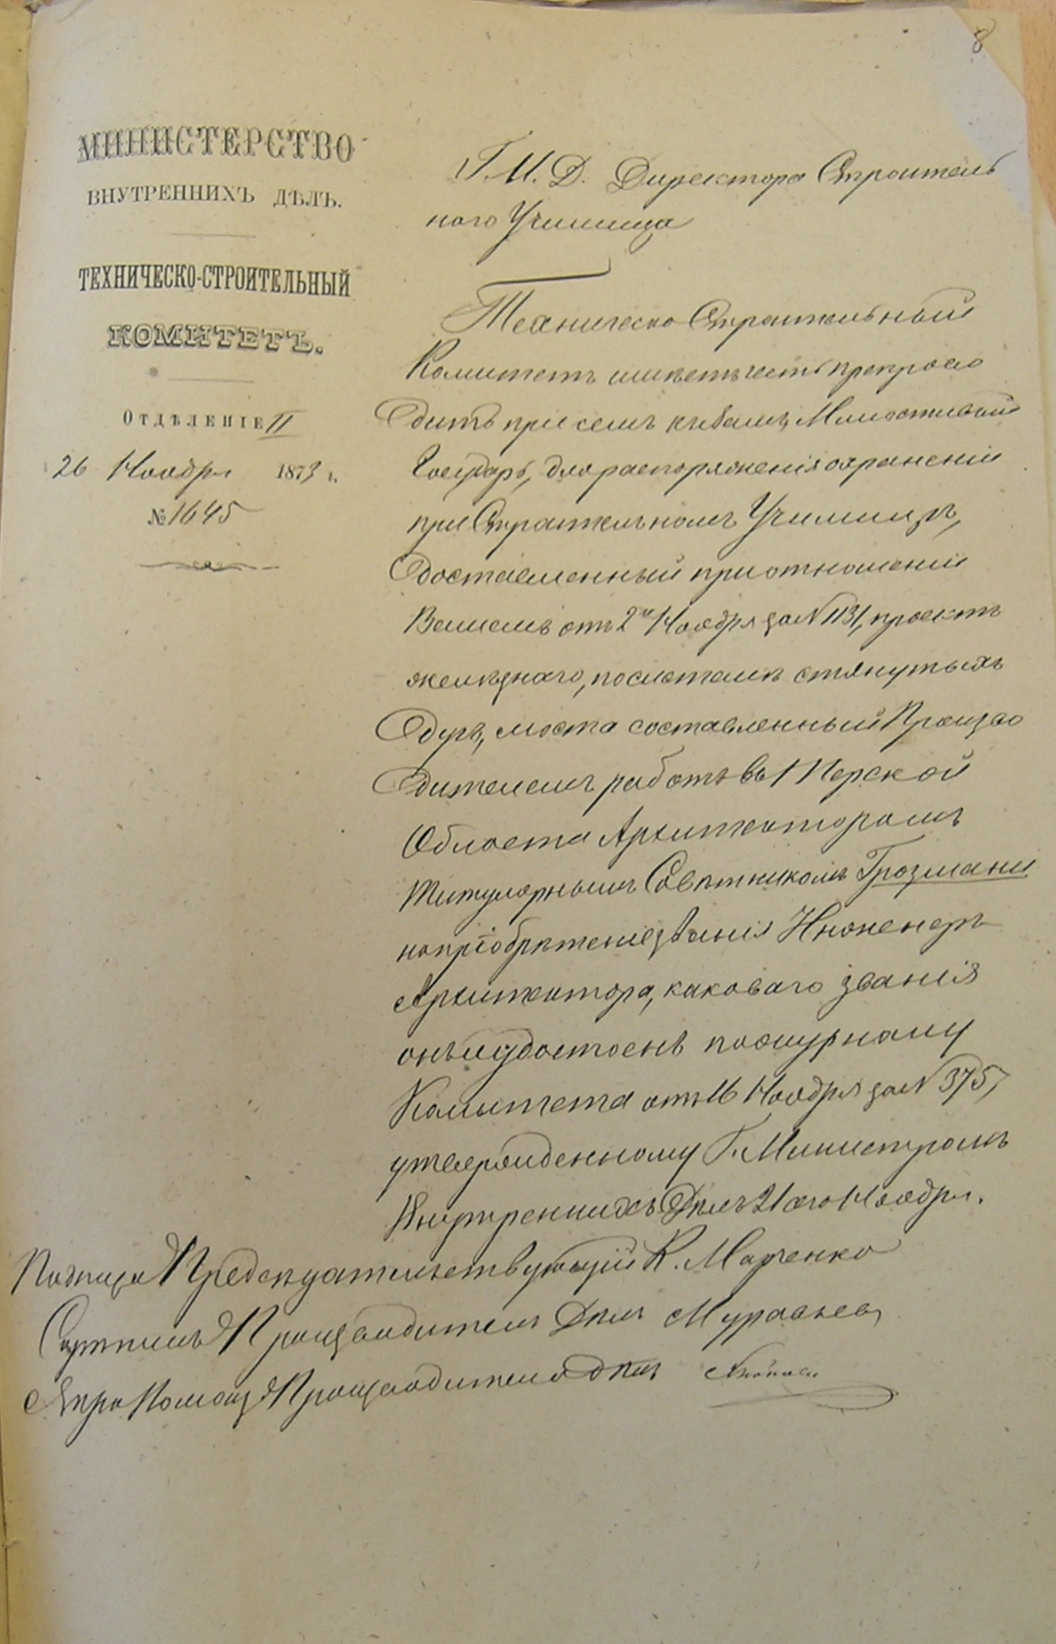 8
МИНИСТЕРСТВО
ВНУТРЕННИХЪ ДѢЛЪ.
ТЕХНИЧЕСКО-СТРОИТЕЛЬНЫЙ
КОМИТЕТЪ.
ОТДѢЛЕНІЕ II
26 Ноября 1873 г.
№ 1645
Г. И. Д. Директора Строитель
наго Училища
Техническо Строительный
Комитетъ имѣетъ честь препрово
дить при семъ къ Вамъ, Милостивый
Государь, для распоряженія о храненіи
при Строительномъ Училищѣ,
доставленный при отношеніи
Вашемъ отъ 2го Ноября за № 1131, проектъ
желѣзнаго, по системѣ стянутыхъ
дугъ, моста составленный Произво
дителемъ работъ во Терской
Области Архитекторомъ
Титулярнымъ Совѣтникомъ Грозмани
на пріобрѣтеніе званія Инженеръ
Архитектора, каковаго званія
онъ и удостоенъ по журналу
Комитета отъ 16 Ноября за № 375,
утвержденному Г. Министромъ
Внутреннихъ Дѣлъ 21 сего Ноября.
Подлиц Предсѣдательствующій К. Марченко
Скрѣпилъ Производитель Дѣлъ Муравьев
Вѣрно Помощ Производителя дѣлъ